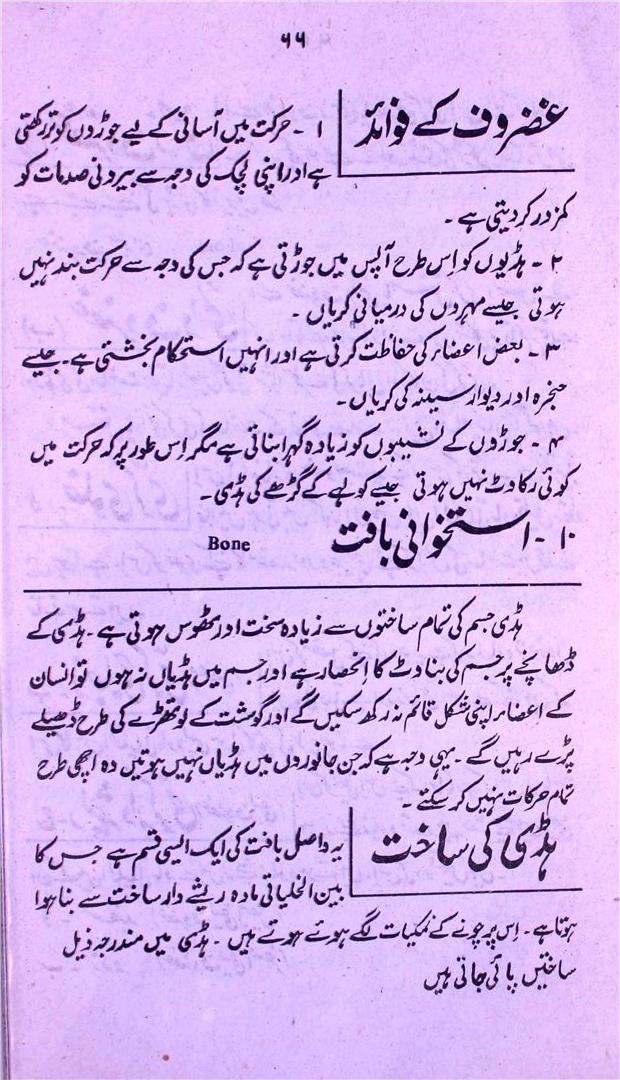 ۶۶
غضروف کے فوائد
۱ - حرکت میں آسانی کے لیے جوڑوں کو تر رکھتی
ہے اور اپنی لچک کی وجہ سے بیرونی صدمات کو
کمزور کر دیتی ہے۔
۲ - ہڈیوں کو اِس طرح آپس میں جوڑتی ہے کہ جس کی وجہ سے حرکت بند نہیں
ہوتی جیسے مہروں کی درمیانی کریاں۔
۳ - بعض اعضاء کی حفاظت کرتی ہے اور انہیں استحکام بخشتی ہے۔ جیسے
حنجرہ اور دیوار سینہ کی کریاں۔
۴ - جوڑوں کے نشیبوں کو زیادہ گہرا بناتی ہے مگر اِس طور پر کہ حرکت میں
کوئی رکاوٹ نہیں ہوتی جیسے کولہے کے گڑھے کی ہڈی۔
۱۰ - استخوانی بافت Bone
ہڈی جسم کی تمام ساختوں سے زیادہ سخت اور ٹھوس ہوتی ہے۔ ہڈی کے
ڈھانچے پر جسم کی بناوٹ کا انحصار ہے اور جسم میں ہڈیاں نہ ہوں تو انسان
کے اعضاء اپنی شکل قائم نہ رکھ سکیں گے اور گوشت کے لوتھڑے کی طرح ڈھیلے
پڑے رہیں گے۔ یہی وجہ ہے کہ جن جانوروں میں ہڈیاں نہیں ہوتیں وہ اچھی طرح
تمام حرکات نہیں کر سکتے۔
ہڈی کی ساخت
یہ واصل بافت کی ایک ایسی قسم ہے جس کا
بین الخلیاتی مادہ ریشے دار ساخت سے بنا ہوا
ہوتا ہے۔ اِس پر چونے کے نمکیات لگے ہوئے ہوتے ہیں۔ ہڈی میں مندرجہ ذیل
ساختیں پائی جاتی ہیں